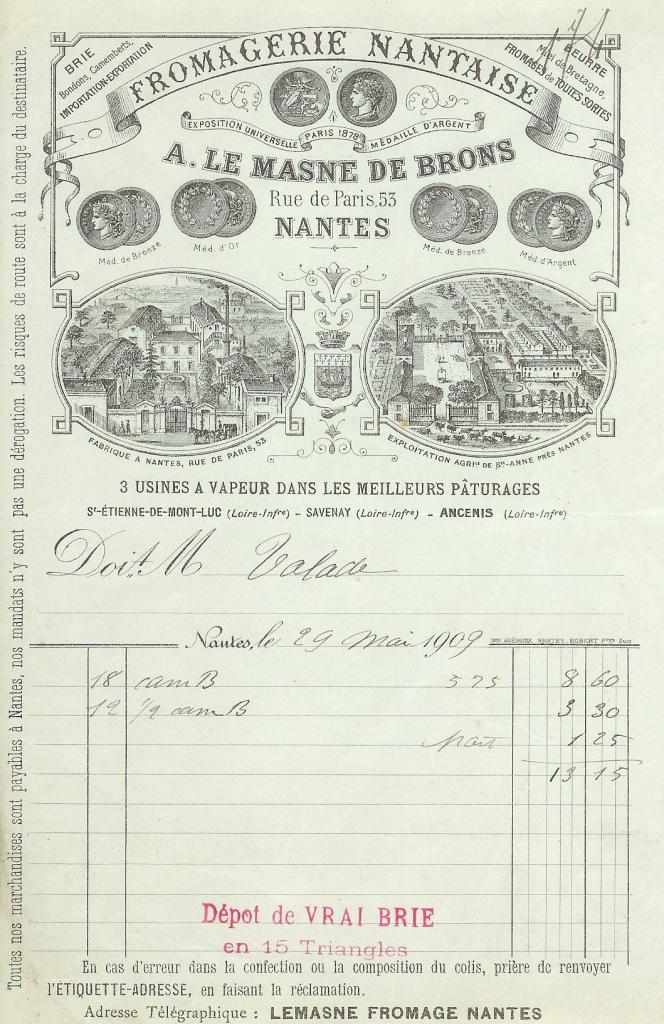 BRIE
Bondons, Camemberts,
IMPORTATION-EXPORTATION
FROMAGERIE NANTAISE
BEURRE
Miel de Bretagne,
FROMAGES de TOUTES SORTES
EXPOSITION UNIVERSELLE PARIS 1878 MÉDAILLE D'ARGENT
A. LE MASNE DE BRONS
Rue de Paris, 53
NANTES
Méd. de Bronze
Méd. d'Or
Méd. de Bronze
Méd. d'Argent
FABRIQUE A NANTES, RUE DE PARIS, 53
EXPLOITATION AGRI.le DE Ste-ANNE PRÈS NANTES
3 USINES A VAPEUR DANS LES MEILLEURS PÂTURAGES
St-ÉTIENNE-DE-MONT-LUC (Loire-Infre) - SAVENAY (Loire-Infre) - ANCENIS (Loire-Infre)
Doit M Valade
Nantes, le 29 mai 1909
18 camB 575 8 60
12 1/2 camB 3 30
1 25
13 15
Dépot de VRAI BRIE
en 15 Triangles
En cas d'erreur dans la confection ou la composition du colis, prière de renvoyer
l'ÉTIQUETTE-ADRESSE, en faisant la réclamation.
Adresse Télégraphique : LEMASNE FROMAGE NANTES
Toutes nos marchandises sont payables à Nantes, nos mandats n'y sont pas une dérogation. Les risques de route sont à la charge du destinataire.